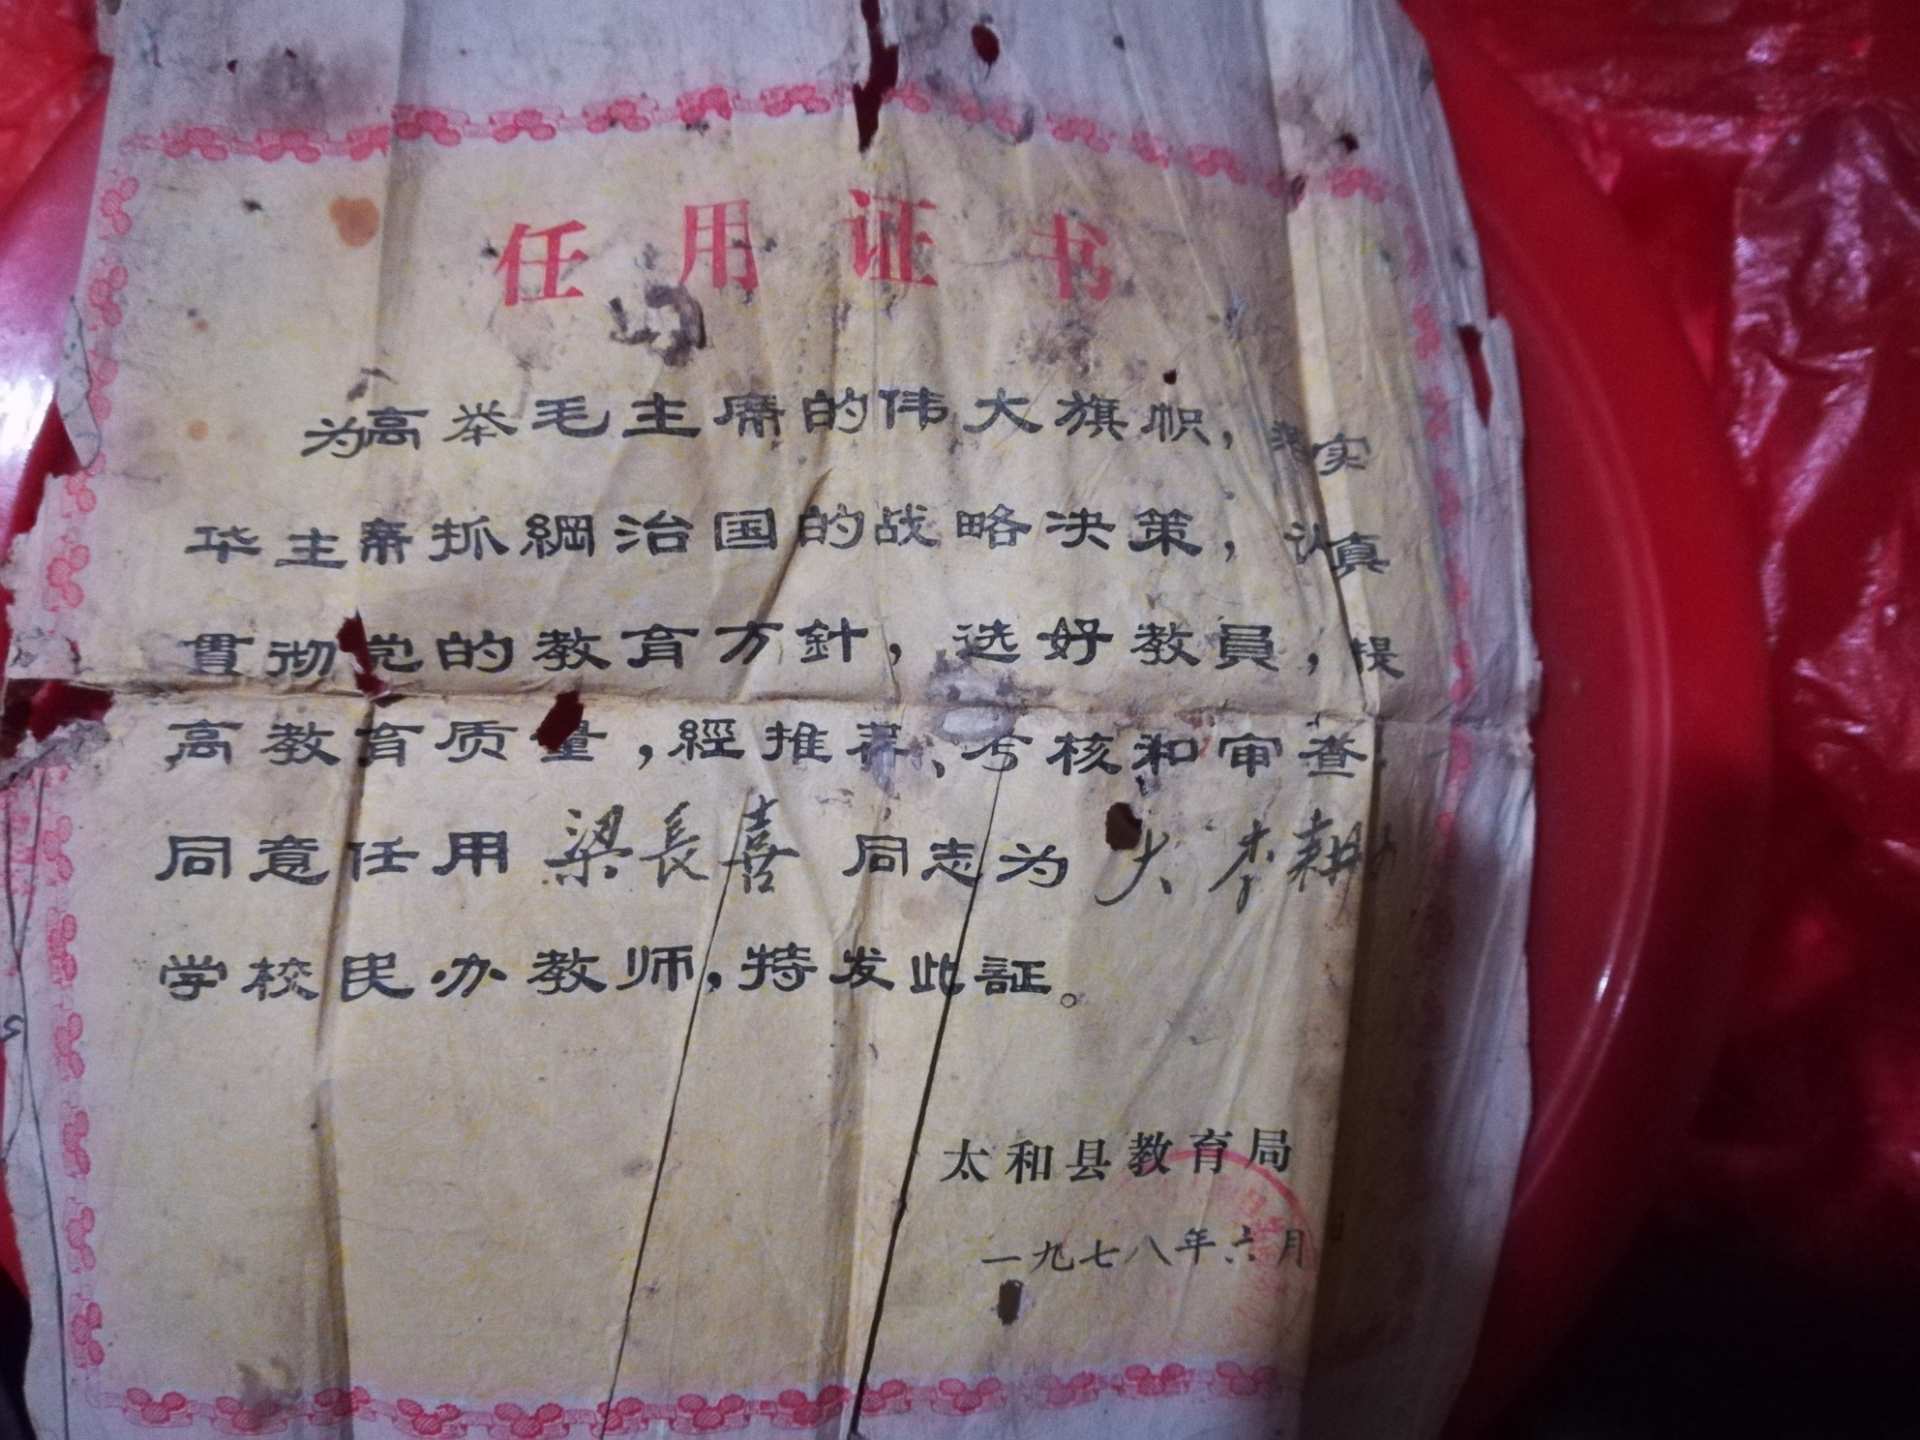 任用证书
为高举毛主席的伟大旗帜，落实
华主席抓綱治国的战略决策，认真
貫彻党的教育方針，选好教員，提
高教育质量，經推荐、考核和审查，
同意任用 梁長喜 同志为 大李耕
学校民办教师，特发此証。
太和县教育局
一九七八年六月